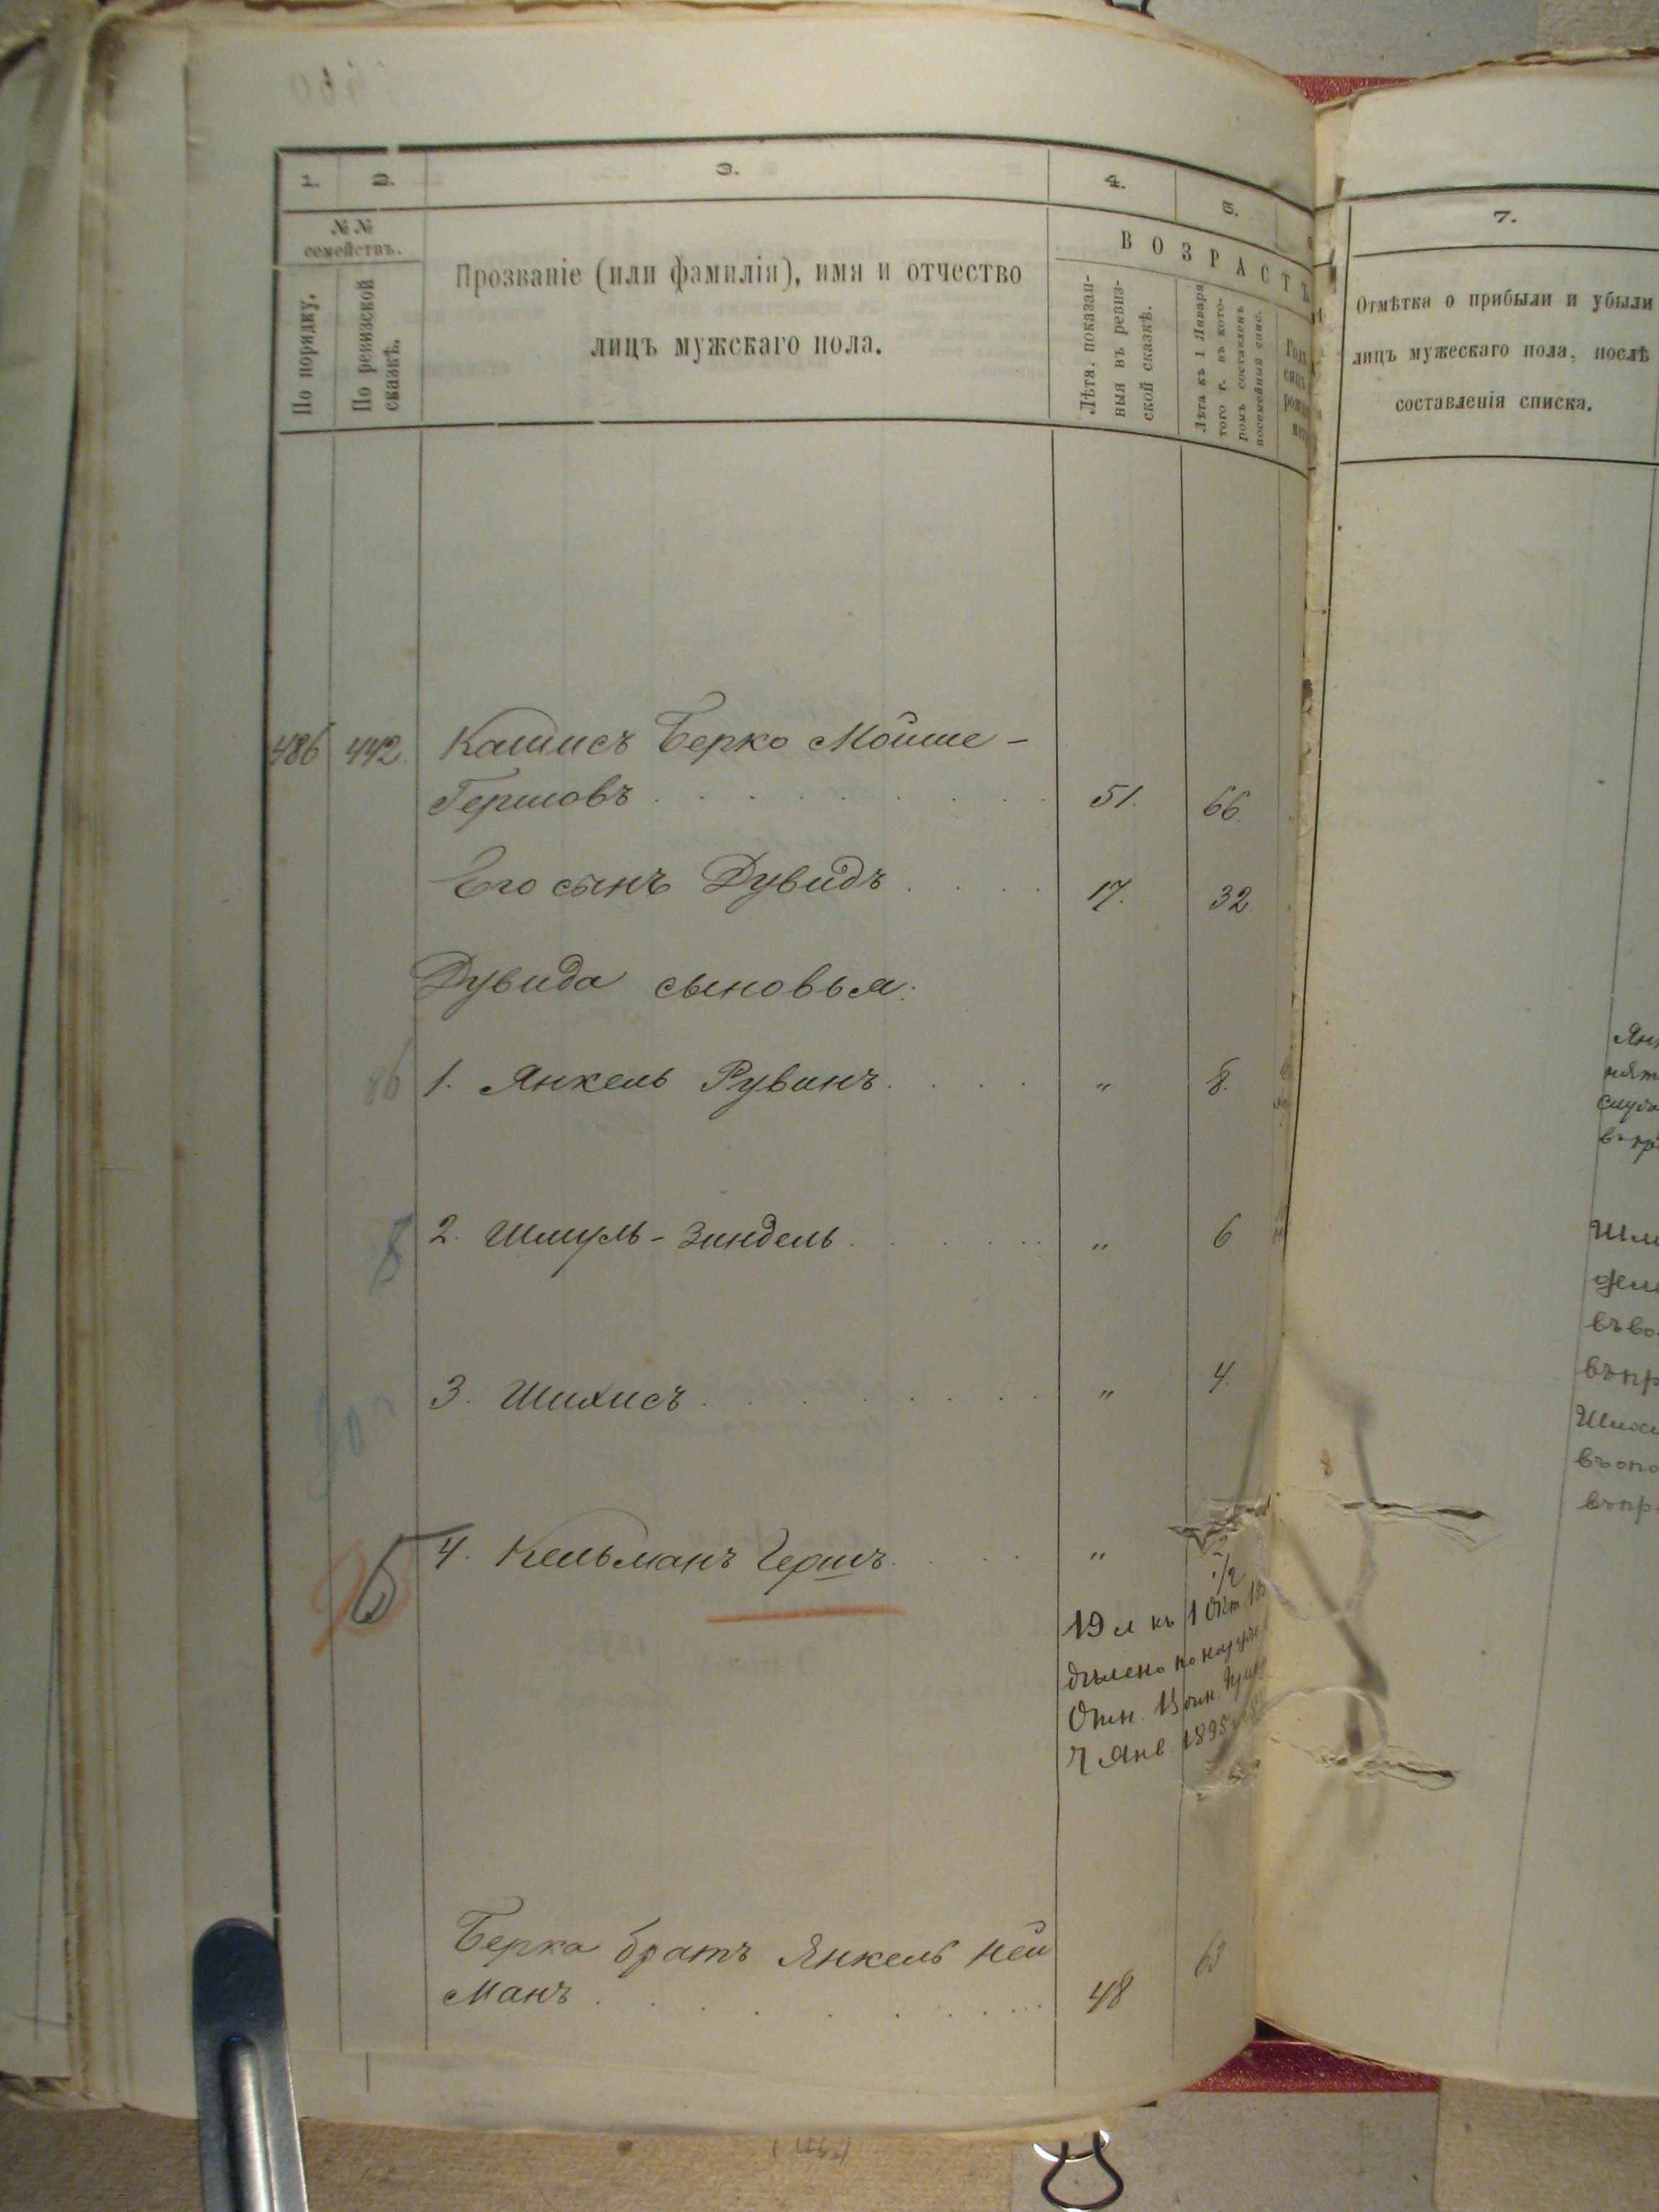 1.
2.
3.
4.
5.
7.
№ № семействъ.
По порядку.
По ревизской сказкѣ.
Прозваніе (или фамилія), имя и отчество
лицъ мужскаго пола.
ВОЗРАСТЪ
Лѣта, показан-
ныя въ ревиз-
ской сказкѣ.
Лѣта къ 1 Января
того г. въ кото-
ромъ составленъ
посемейный спис.
Отмѣтка о прибыли и убыли
лицъ мужескаго пола, послѣ
составленія списка.
486 442. Кашисъ Берко Мойше-
Гершовъ 51. 66.
Его сынъ Дувидъ 17. 32.
Дувида сыновья:
86 1. Янкель Рувинъ „ 8.
2. Шмуль-Зиндель „ 6
3. Шихисъ „ 4.
4. Кельманъ Гершъ „ 2 1/2
19 л къ 1 Окт
Отн.
7 Янв. 1895
Берка братъ Янкель Ней
манъ 48 63